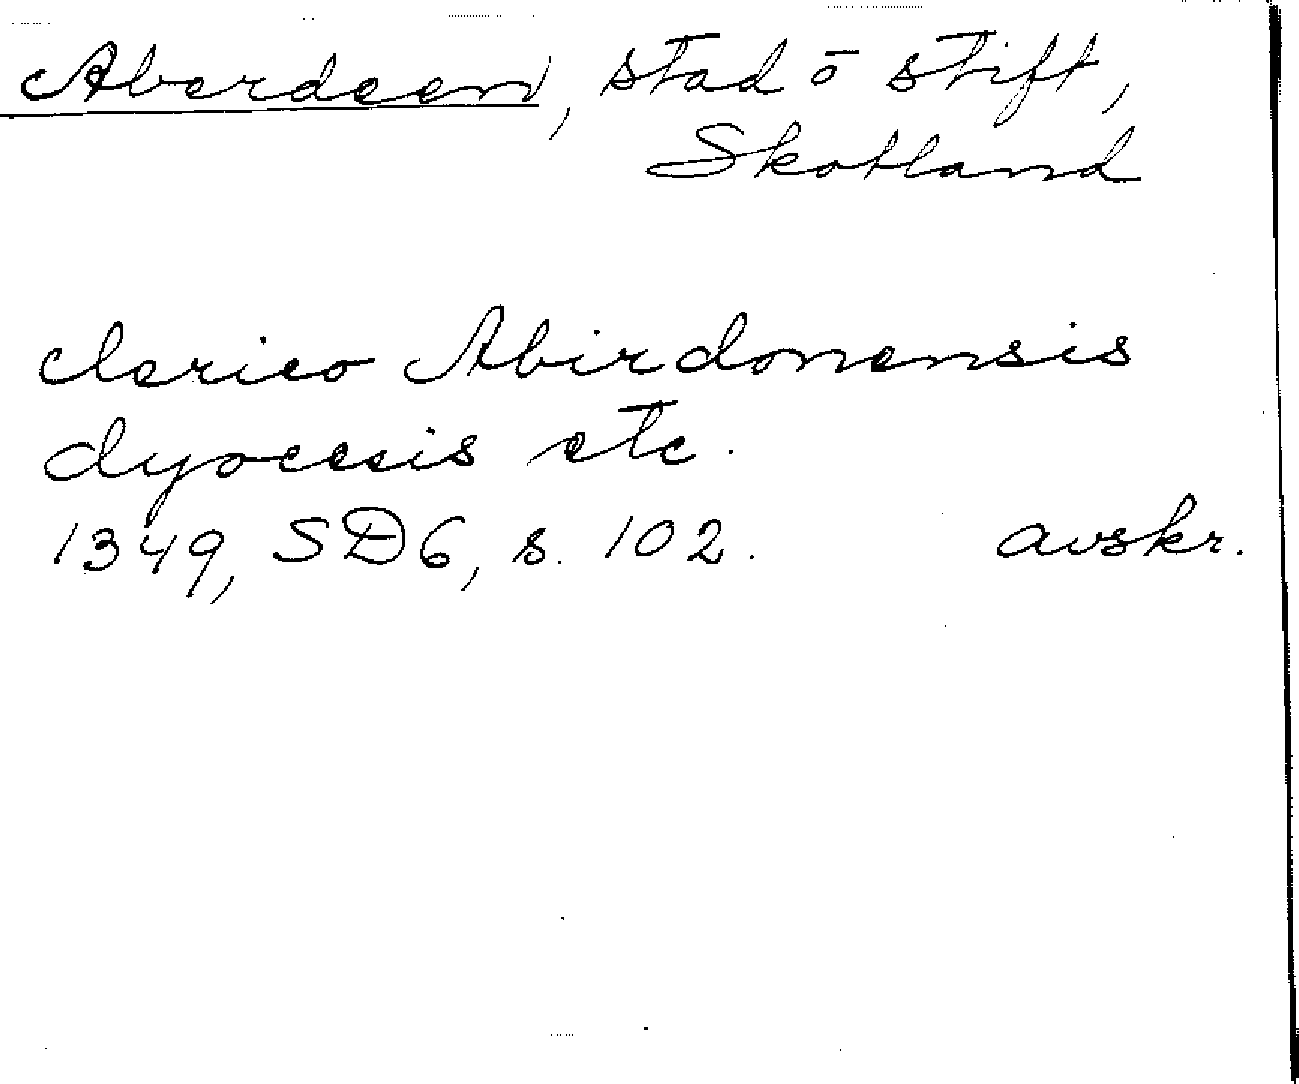 Aberdeen, stad o stift,
Skotland
clerico Abirdonensis
dyocesis etc.
1349, SD6, s. 102. avskr.